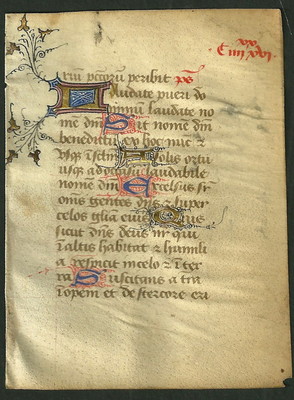 trium pctorũ peribit ps̃
Laudate pueri do
minum laudate no
me dm̃ Sit nome dm̃
benedictũ ex hoc nũc ⁊
usqȝ in sclm̃ A solis ortu
usqȝ ad occasũ laudabile
nomen dm̃ Excelsus sr̃
omnis gentes dm̃s ⁊ super
celos glia eius Quis
sicut dñs deus nr̃ qui
ĩ altis habitat ⁊ humili
a respicit ĩ celo ⁊ ĩ ter
ra Suscitans a tra
ĩopem et de stercore eri